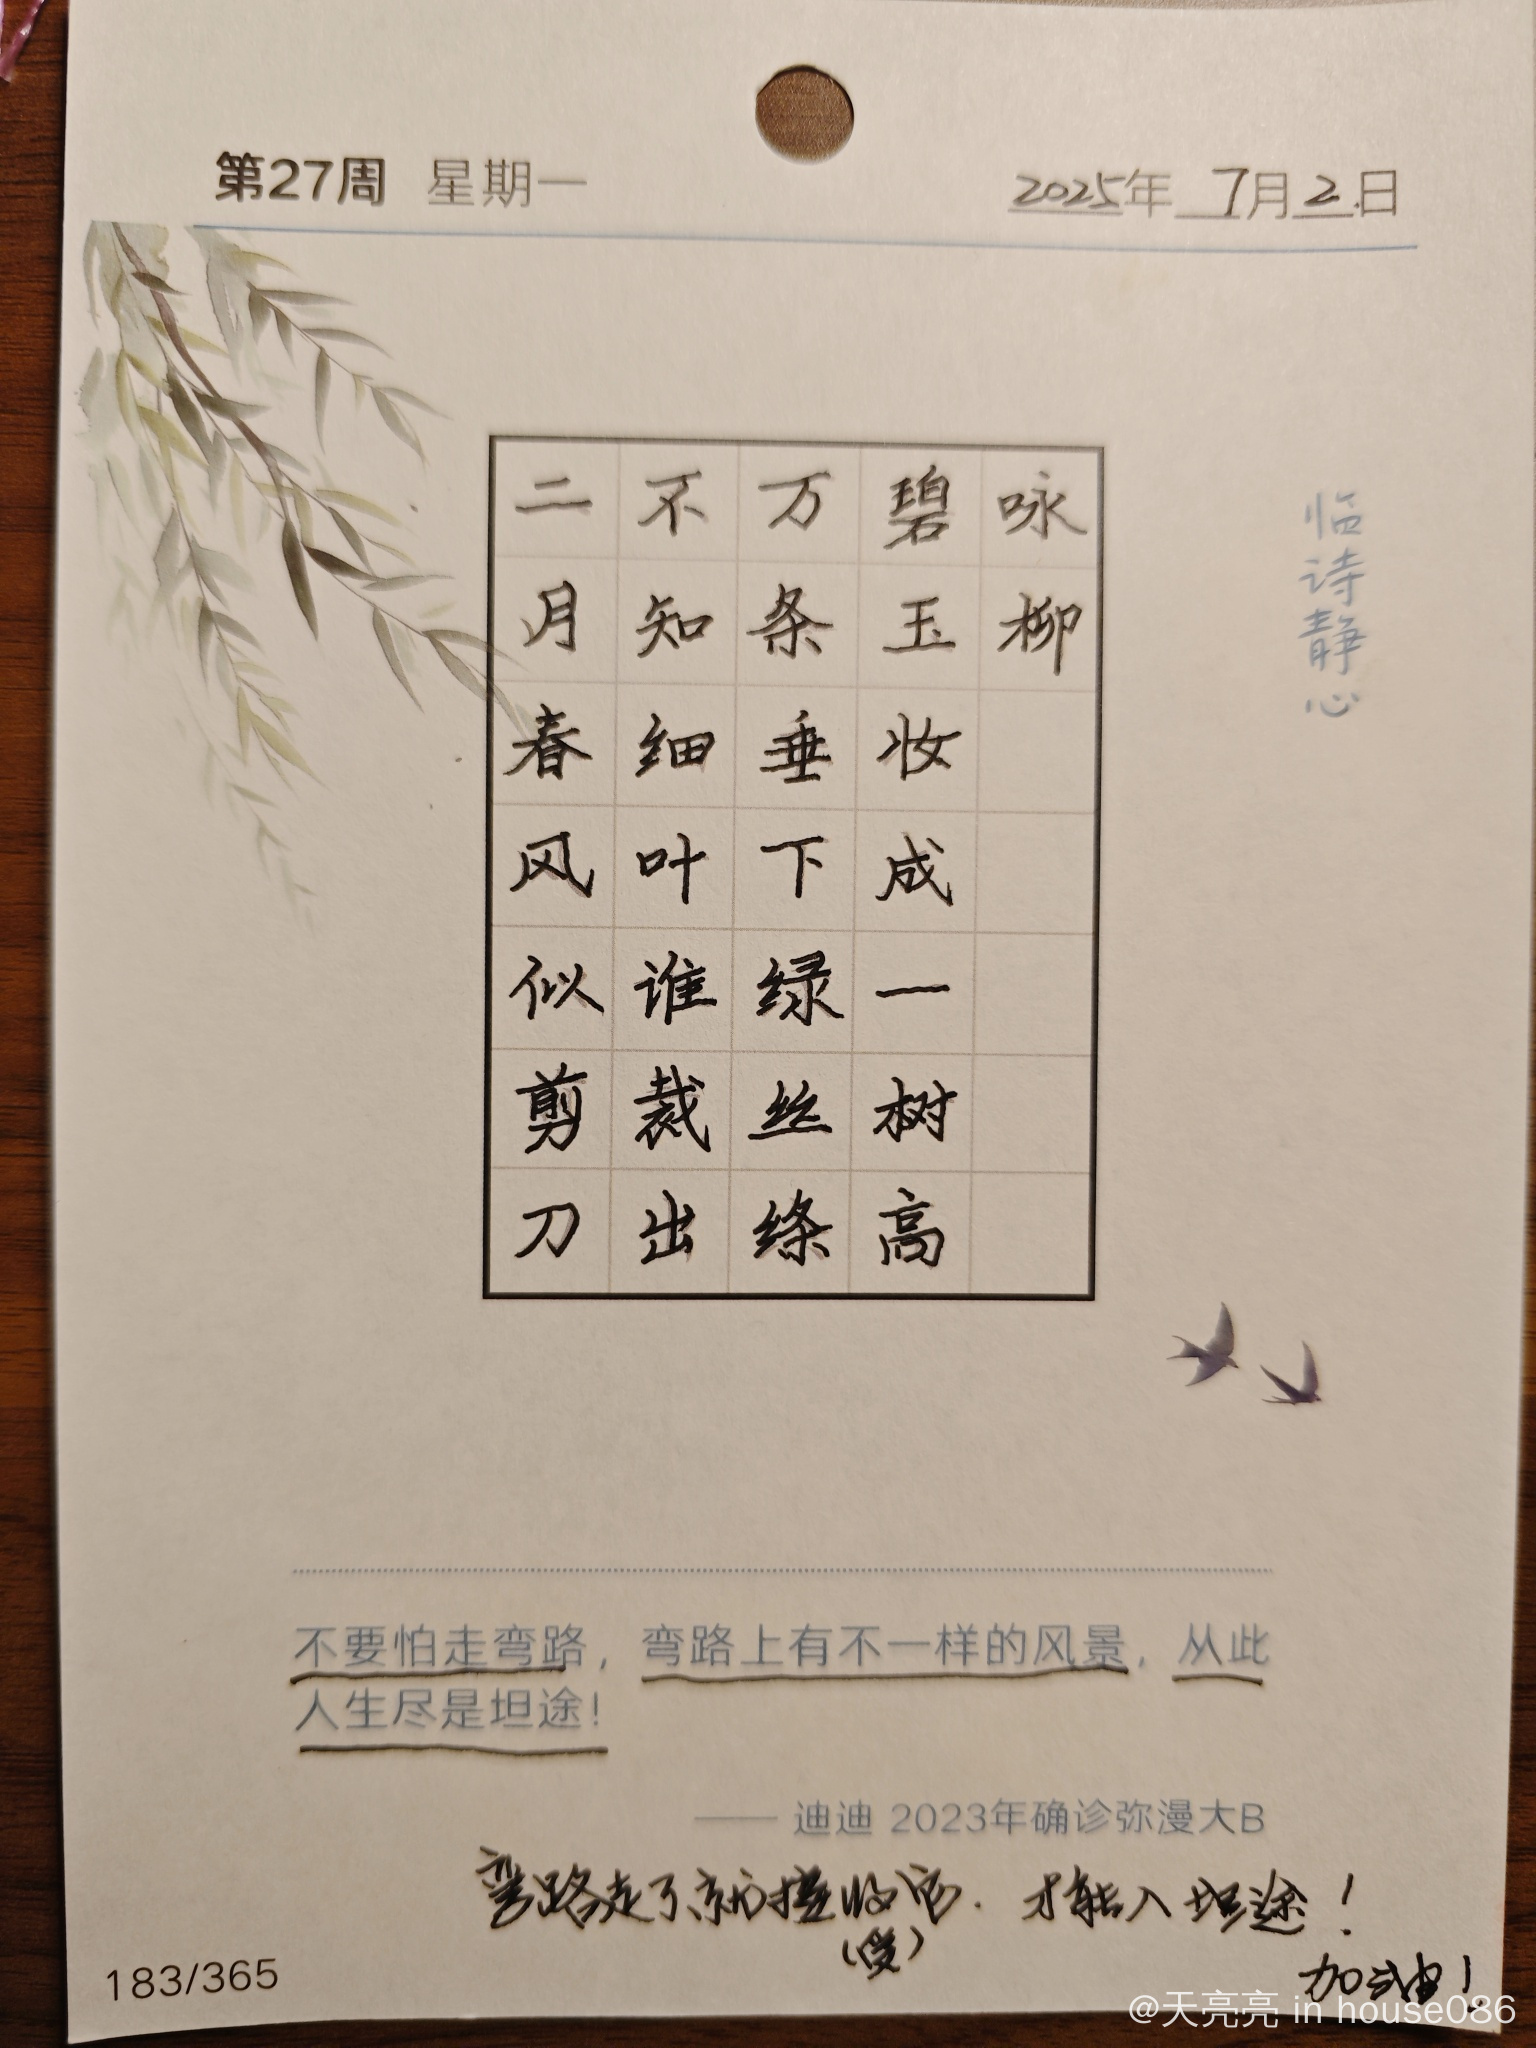 第27周 星期一
2025年 7月2日
临诗静心
咏柳
碧玉妆成一树高
万条垂下绿丝绦
不知细叶谁裁出
二月春风似剪刀
不要怕走弯路，弯路上有不一样的风景，从此
人生尽是坦途！
—— 迪迪 2023年确诊弥漫大B
弯路走了就接收它. 才转入坦途！
(受)
加油！
183/365
@天亮亮 in house086